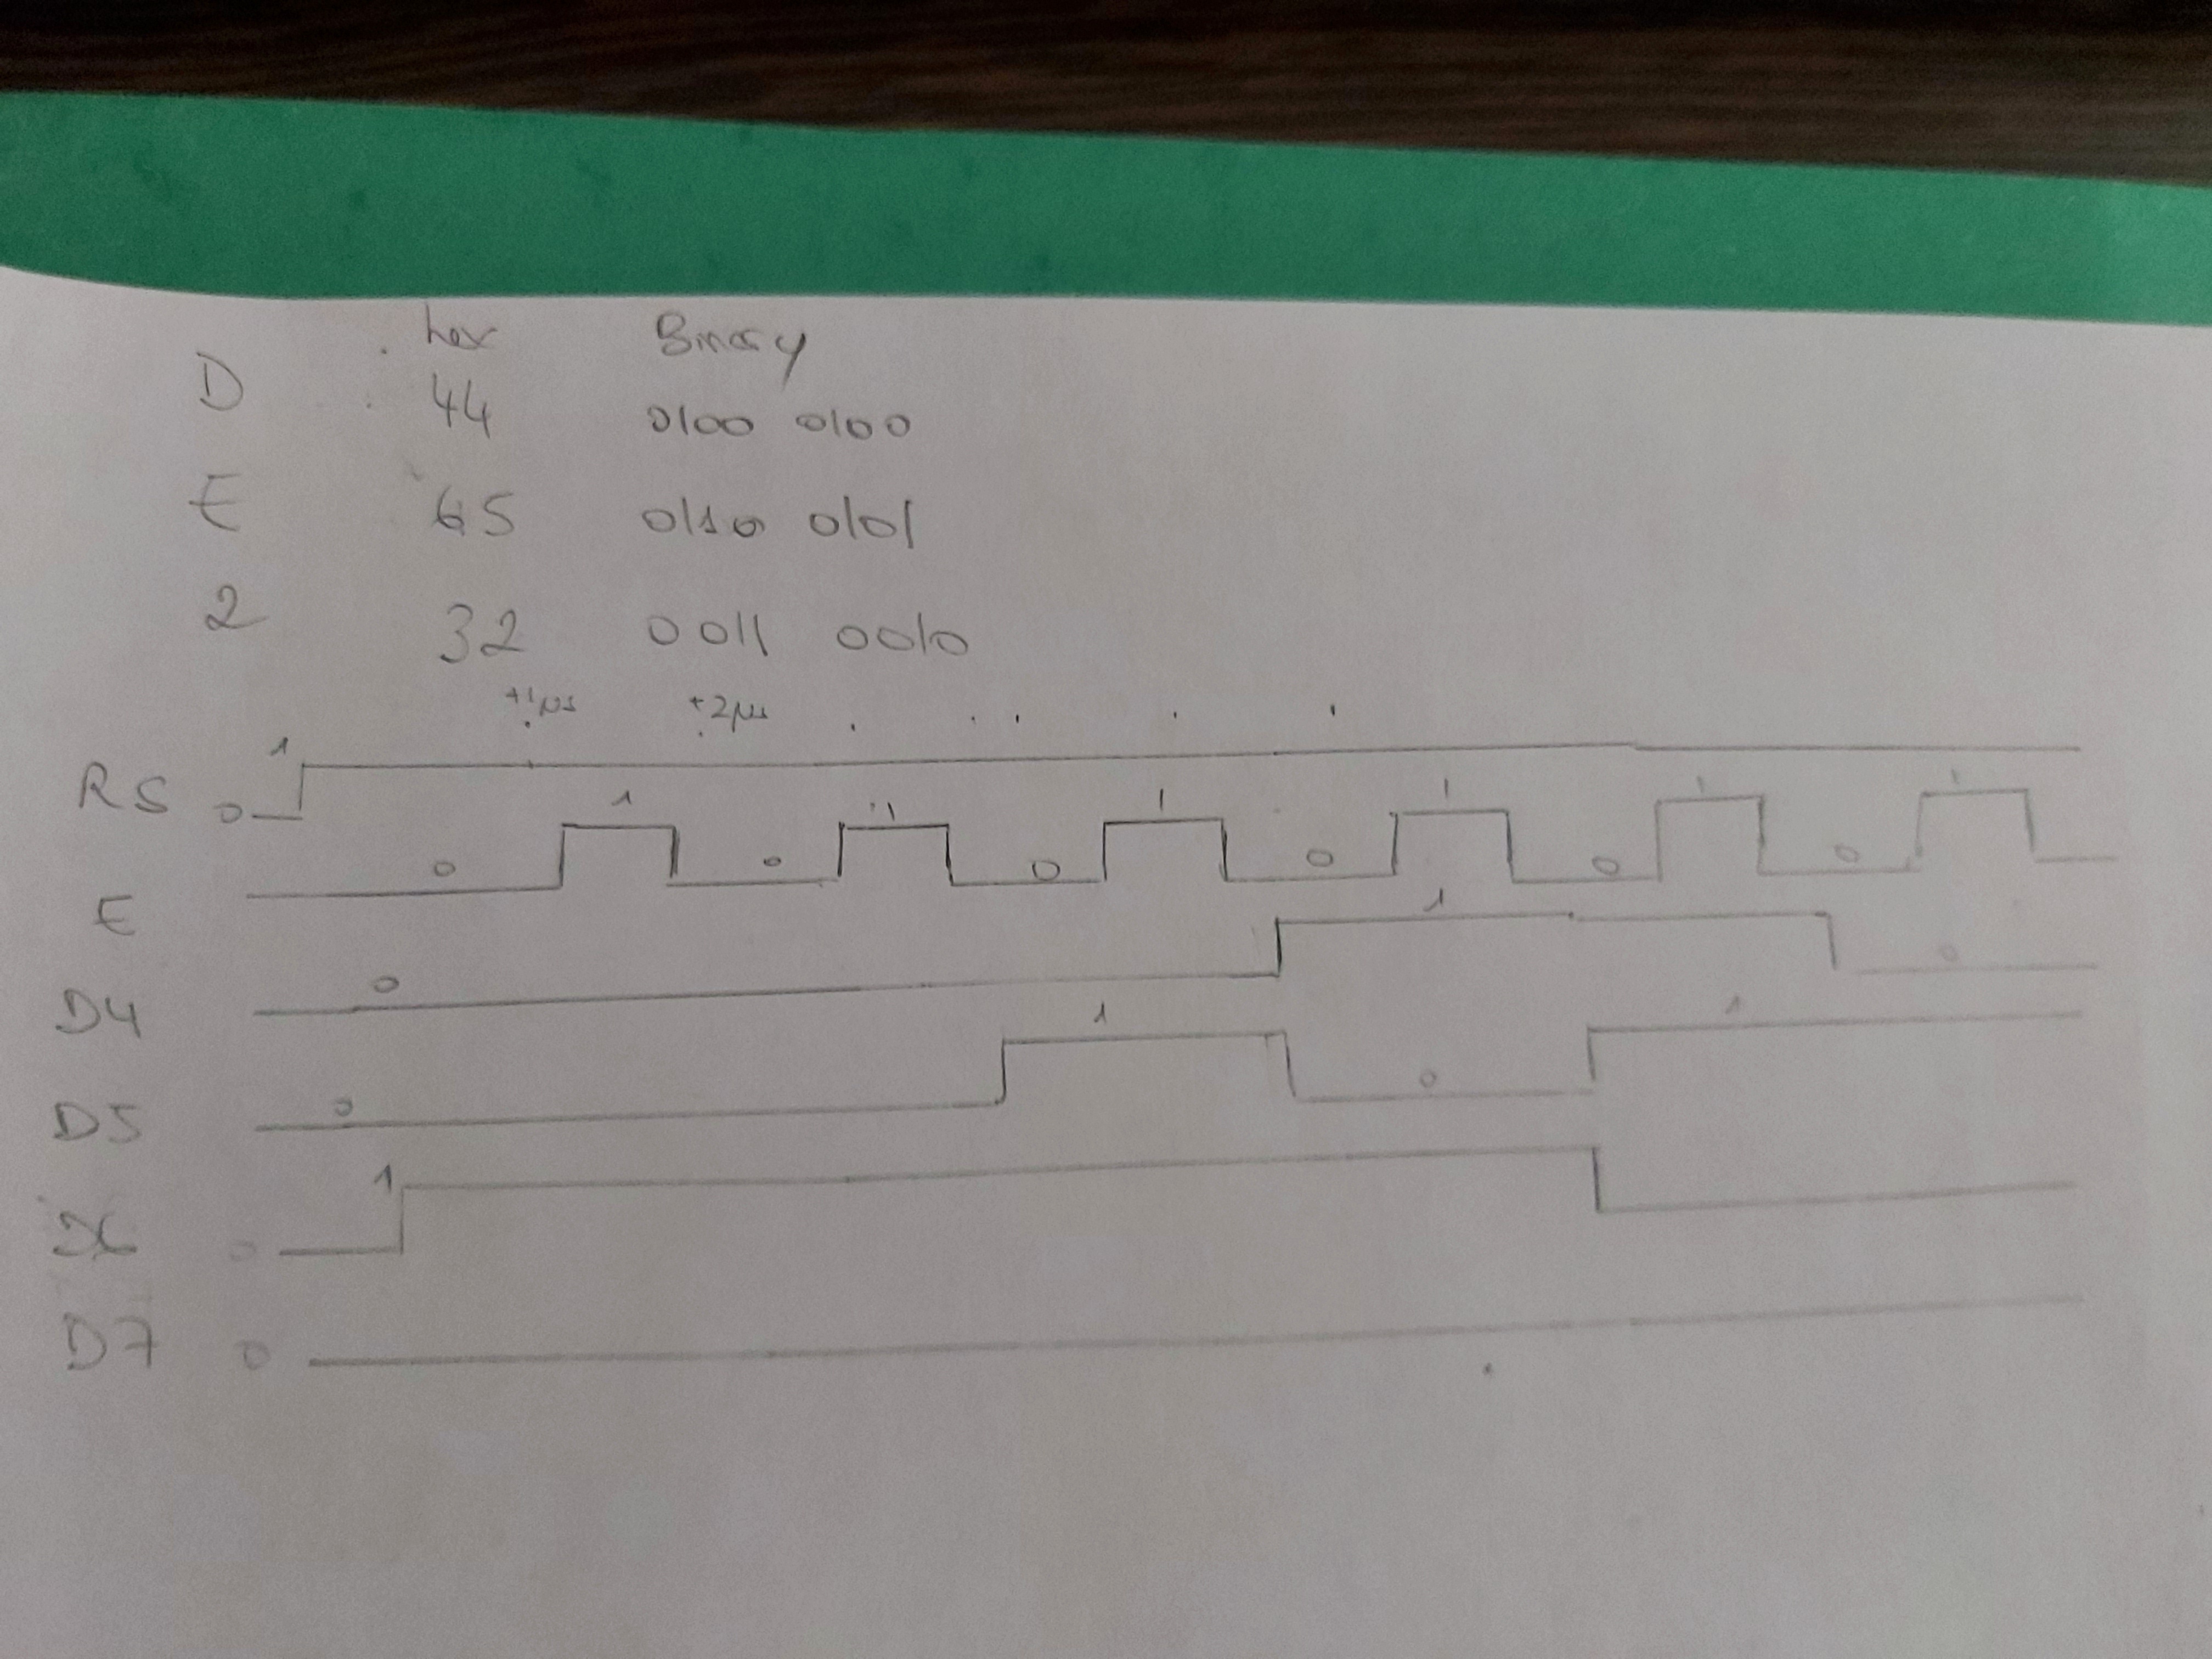 hex Binary
D 44 0100 0100
E 65 0110 0101
2 32 0011 0010
+1µs +2µs
1
RS 0
1 1 1 1 1 1
E 0 0 0 0 0 0
1
D4 0 0
1 1
D5 0 0
1
D6 0
D7 0